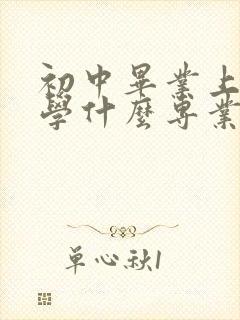 初中畢業上
學什麼專業
單心秋1